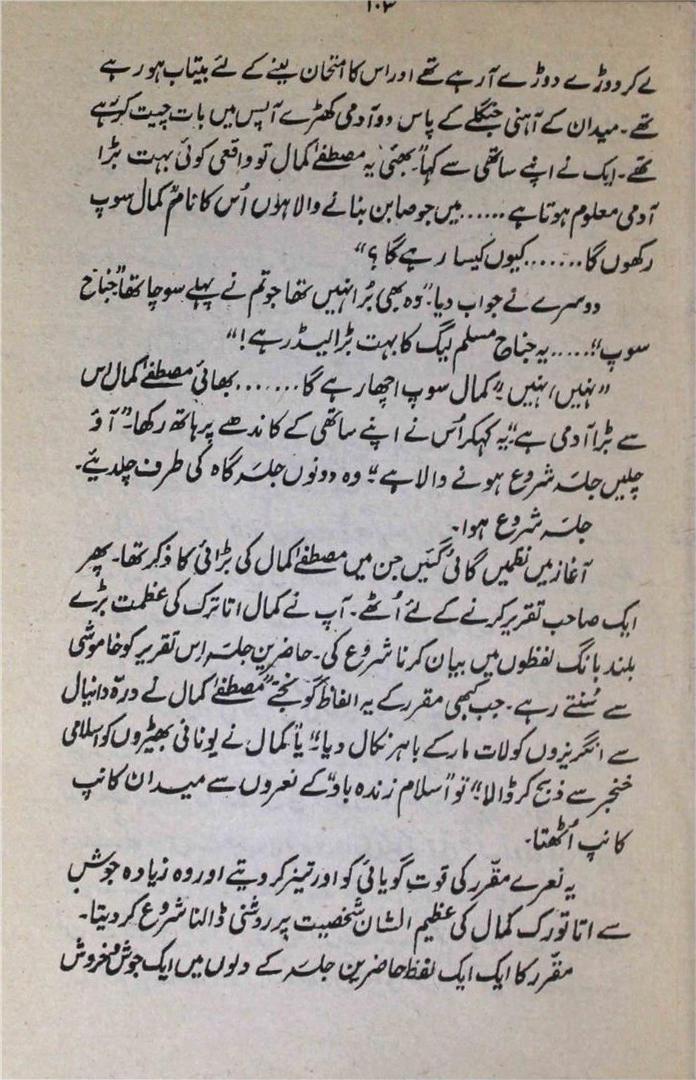 ۱۰۳
لے کر دوڑے دوڑے آرہے تھے اور اس کا امتحان لینے کے لئے بیتاب ہو رہے
تھے۔ میدان کے آہنی جنگلے کے پاس دو آدمی کھڑے آپس میں بات چیت کر رہے
تھے۔ ایک نے اپنے ساتھی سے کہا "بھئی یہ مصطفےٰ کمال تو واقعی کوئی بہت بڑا
آدمی معلوم ہوتا ہے ...... میں جو صابن بنانے والا ہوں اُس کا نام "کمال سوپ
رکھوں گا ....... کیوں کیسا رہے گا ؟"
دوسرے نے جواب دیا۔ "وہ بھی بُرا نہیں تھا جو تم نے پہلے سوچا تھا "جناح
سوپ" ..... یہ جناح مسلم لیگ کا بہت بڑا لیڈر ہے !"
"نہیں، نہیں ۔" کمال سوپ اچھا رہے گا ....... بھائی مصطفےٰ کمال اس
سے بڑا آدمی ہے" یہ کہکر اُس نے اپنے ساتھی کے کاندھے پر ہاتھ رکھا۔ "آؤ
چلیں جلسہ شروع ہونے والا ہے" وہ دونوں جلسہ گاہ کی طرف چلدیئے۔
جلسہ شروع ہوا۔
آغاز میں نظمیں گائی گئیں جن میں مصطفےٰ کمال کی بڑائی کا ذکر تھا۔ پھر
ایک صاحب تقریر کرنے کے لئے اُٹھے۔ آپ نے کمال اتاترک کی عظمت بڑے
بلند بانگ لفظوں میں بیان کرنا شروع کی۔ حاضرین جلسہ اِس تقریر کو خاموشی
سے سُنتے رہے۔ جب کبھی مقرر کے یہ الفاظ گونجتے "مصطفےٰ کمال نے درۂ دانیال
سے انگریزوں کو لات مار کے باہر نکال دیا" یا "کمال نے یونانی بھیڑوں کو اسلامی
خنجر سے ذبح کر ڈالا" تو "اسلام زندہ باد" کے نعروں سے میدان کانپ
کانپ اُٹھتا۔
یہ نعرے مقرّر کی قوتِ گویائی کو اور تیز کر دیتے اور وہ زیادہ جوش
سے اتا تورک کمال کی عظیم الشان شخصیت پر روشنی ڈالنا شروع کر دیتا۔
مقرّر کا ایک ایک لفظ حاضرین جلسہ کے دلوں میں ایک جوش و خروش